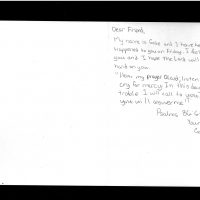 Dear Friend,
My name is Gabe and I have he
happened to you on Friday. I
you and I hope the Lord will
hand on you.
"Hear my prayer O Lord, listen
cry for mercy. In this day
trouble I will call to you
you will answer me"
Psalms 86:6
Your